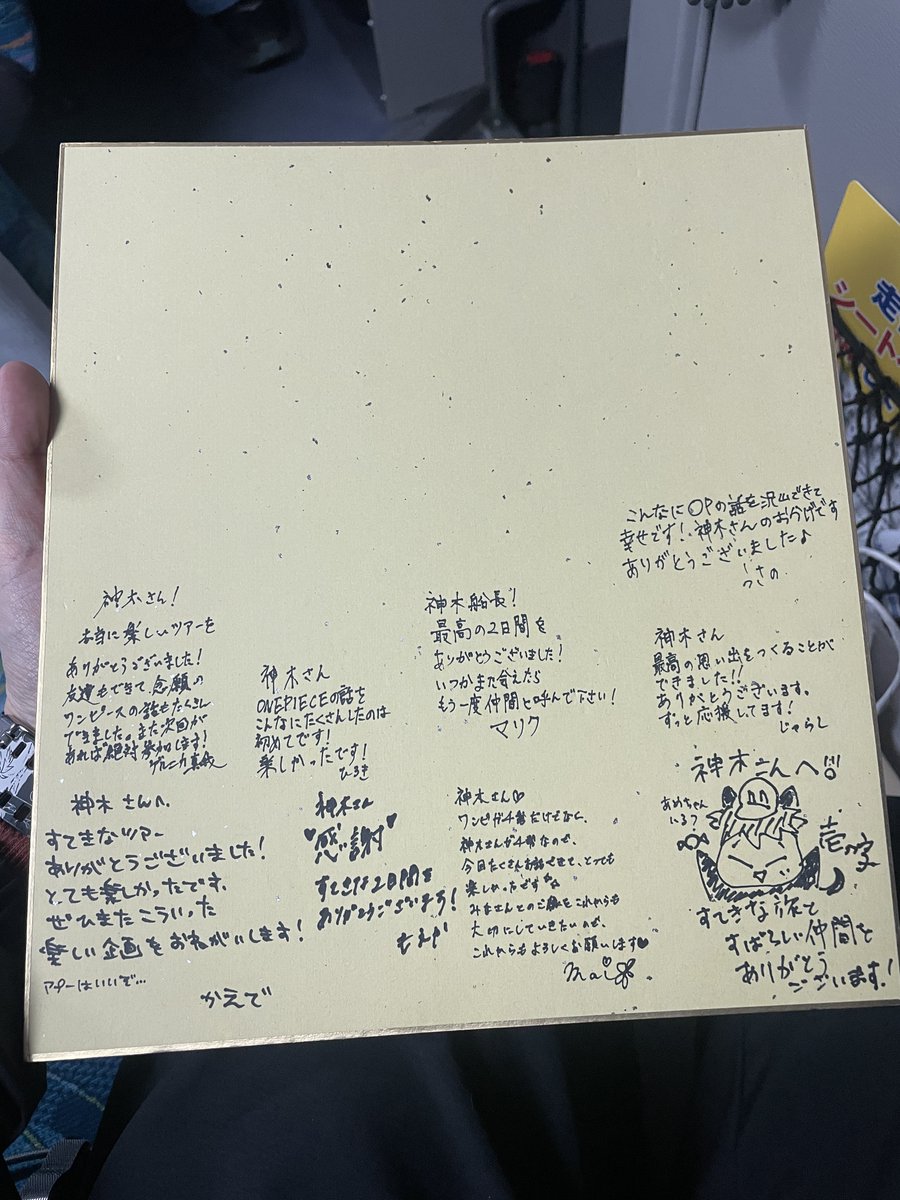 こんなに○Pの話を沢山できて
幸せです！神木さんのお分げです
ありがとうございましたよ
うさの
神木さん！
本当に楽しいツアーを
ありがとうございました！
友達もできて、念願の
ワンピースの話もたくさん
できました。また次回が
あれば絶対参加します！
神木さん
ONEPIECEの話を
こんなにたくさんしたのは
初めてです！
楽しかったです！
ひろき
神木船長！
最高の2日間を
ありがとうございました！
いつかまた会えたら
もう一度仲間と呼んで下さい！
マリク
神木さん
最高の思い出をつくることが
できました!!
ありがとうございます。
ずっと応援してます！
じゃらし
神木さんへ
すてきなツアー
ありがとうございました！
とても楽しかったです。
ぜひまたこういった
楽しい企画をおねがいします！
アチーはいいぞ…
かえで
神木さん
♥感謝♥
すてきな2日間を
ありがとうございます！
ちえパ
神木さん♡
ワンピが1番だけど
神木さんが1番なので、
今日たくさんお話させて、とっても
楽しかったです
みなさんとのご縁をこれからも
大切にしていきたいので、
これからもよろしくお願いします♥
Mai
神木さんへ!!
あめちゃん
いる？
壱の字
すてきな旅と
すばらしい仲間を
ありがとう
ございます！
走
シート